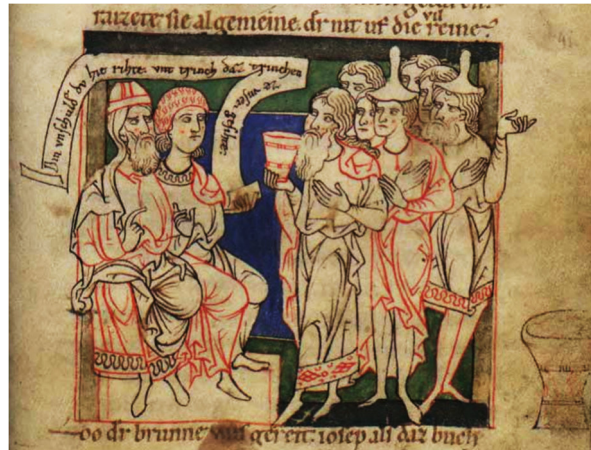 raizete sie algemeine. dr nit uf die reine.
vnschuld dv hie rihte. vnt trinch daz trinchen
gesihte.
41
dr brunne was gereit. iosep als daz buch